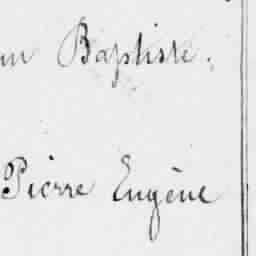 Baptiste.
Pierre Eugène